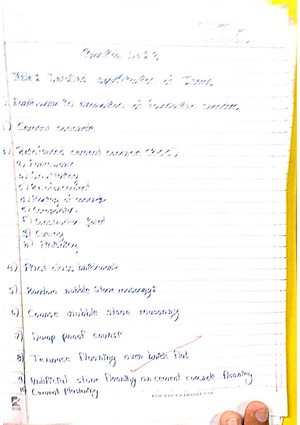 Title: Detailed specification of Items
1) Earth work in excavation of foundation trenches
2) Cement concrete
3) Reinforced cement concrete (RCC)
a) Form work
b) Centering
c) Reinforcement
d) Placing of concrete
e) Compaction
f) Construction Joint
g) Curing
h) Finishing
4) First class brickwork
5) Random rubble stone masonry
6) Course rubble stone masonry
7) Damp proof course
8) Terrace flooring over brick flat
9) Artificial stone flooring on cement concrete flooring
Cement Plastering